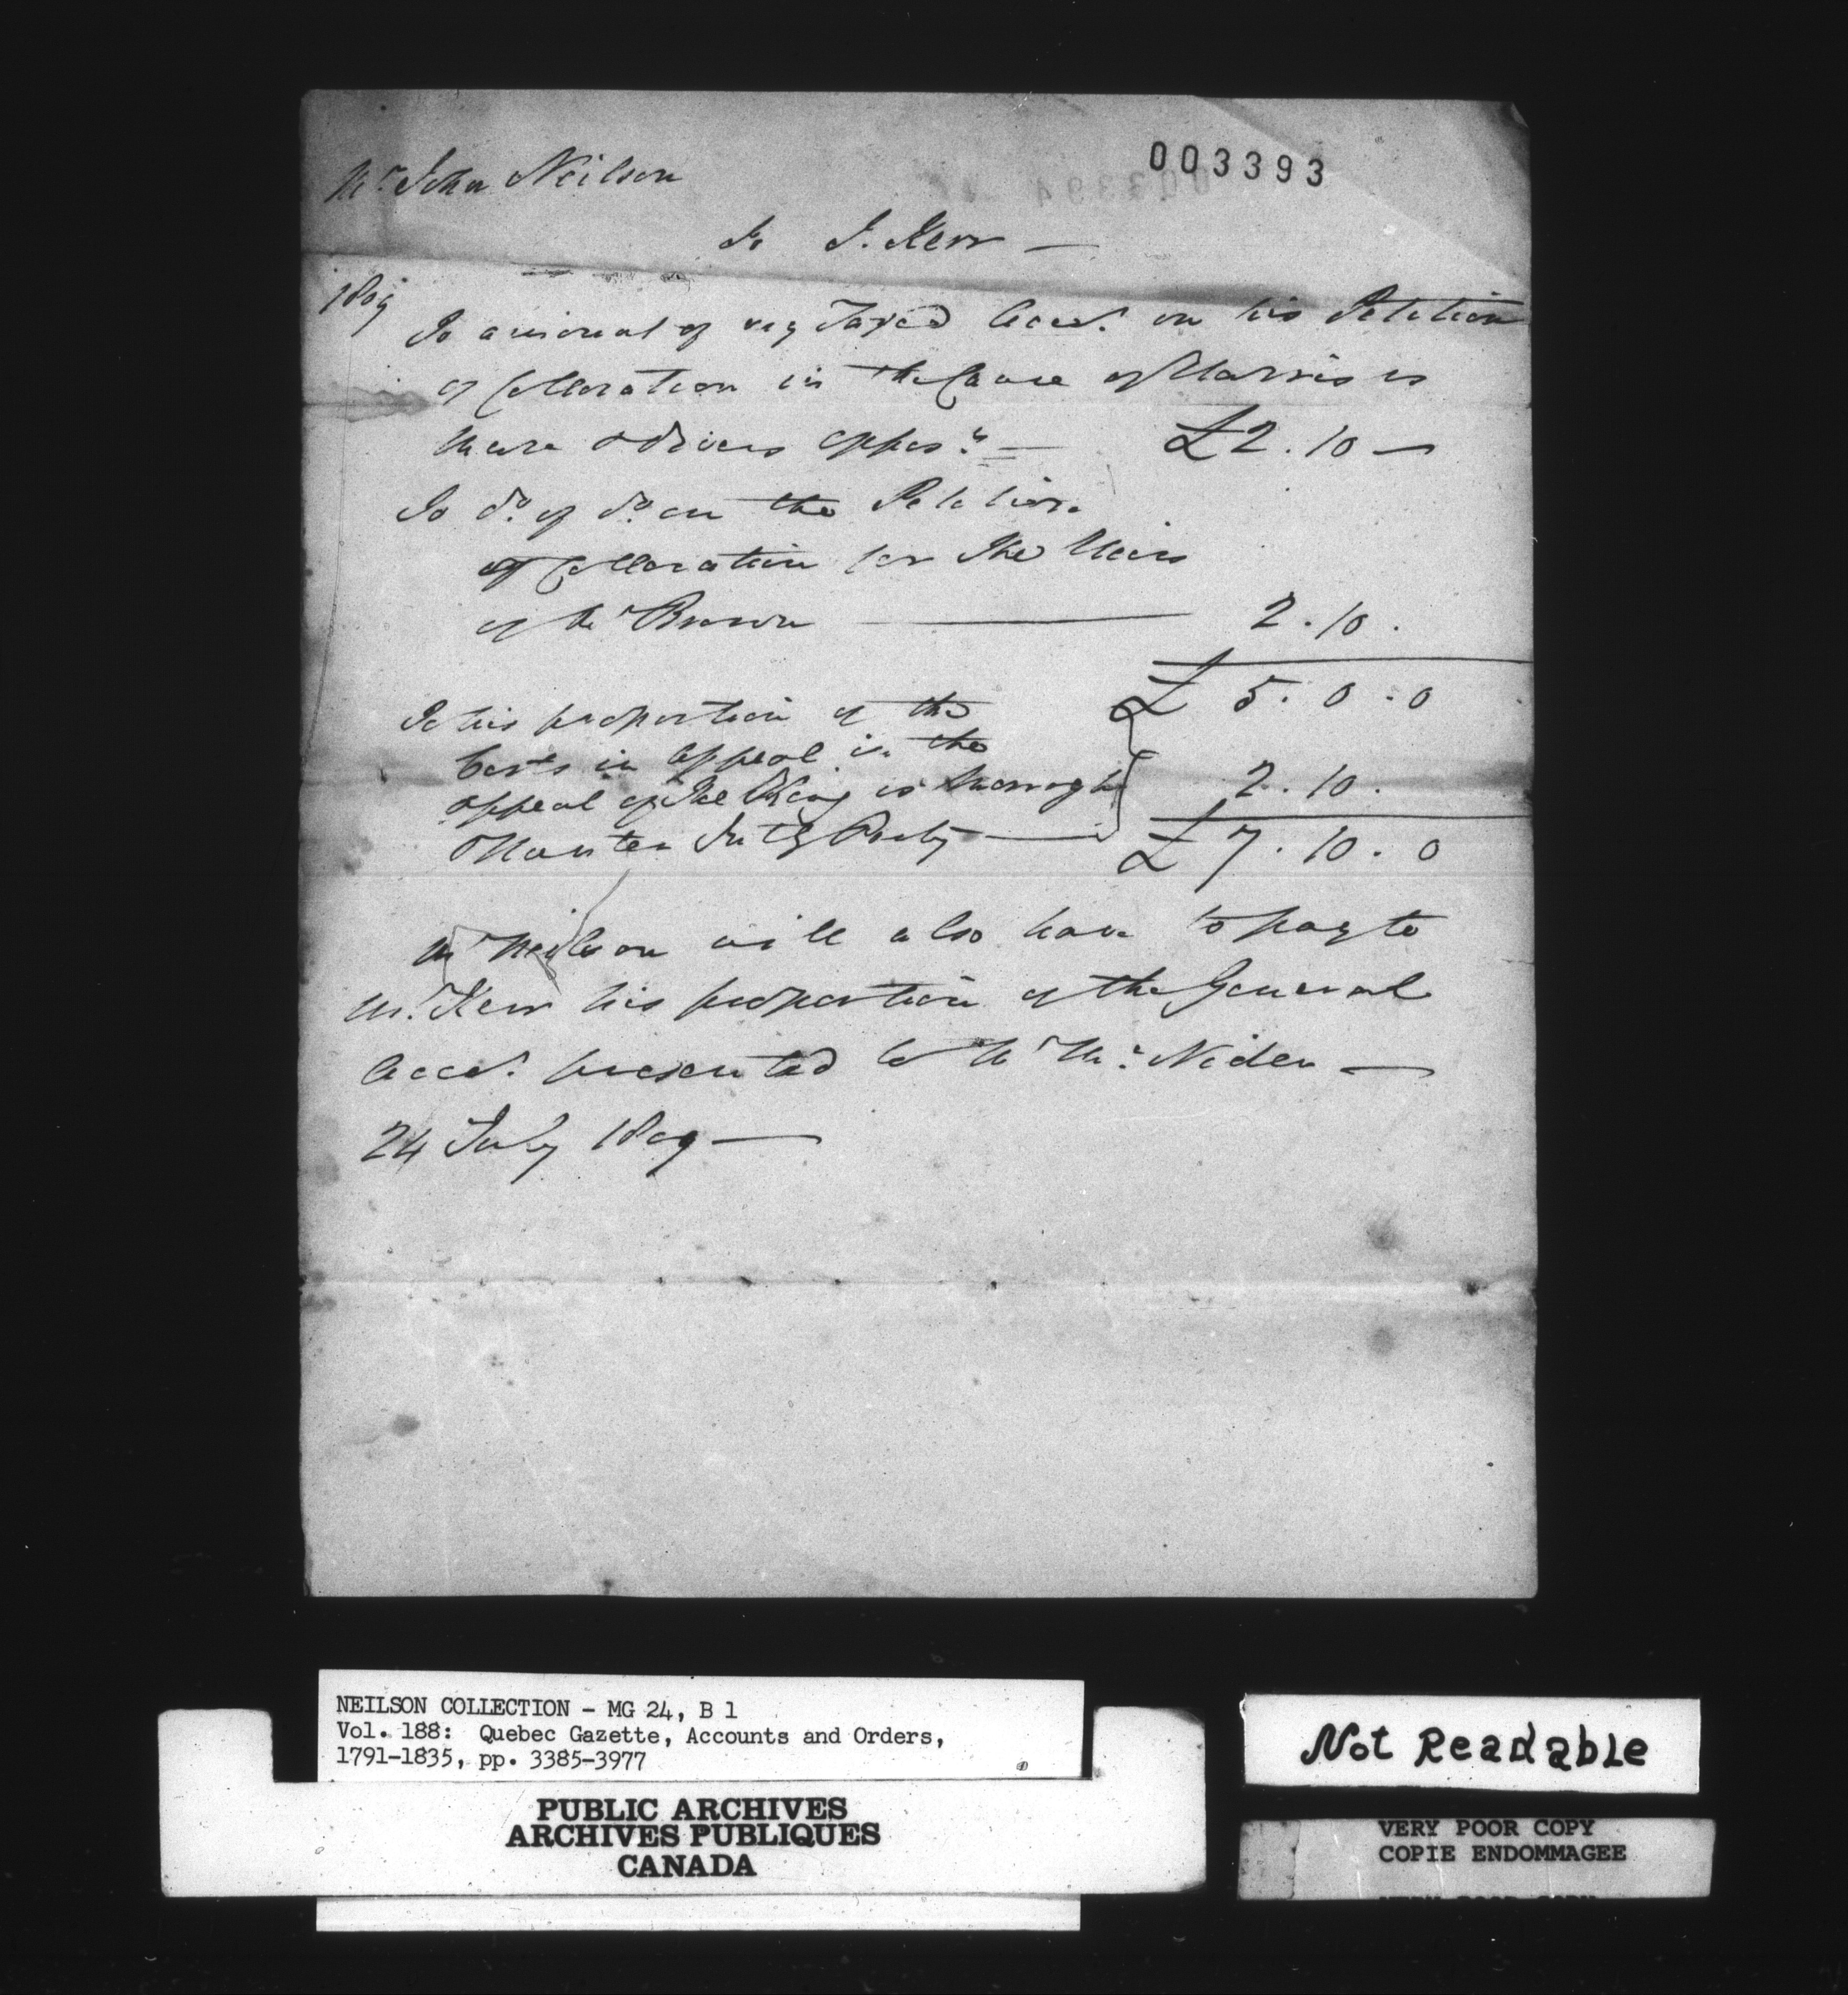 003393
Mr John Neilson
To J. Kerr —
1809
To amount of my Taxed Acct. on his Petition
of Collocation in the Cause of Harris vs
Mure & Divers oppos.ts — £2.10 —
To do. of do. on the Petition
of Collocation for The Heirs
of Mr Brown — 2.10.
£ 5.0.0
To his proportion of the
Costs in Appeal in the
appeal of The King vs 2.10.
£ 7.10.0
Mr Neilson will also have to pay to
Mr. Kerr his proportion of the General
Acct. presented to Mr Mc. Nider —
24 July 1809 —
NEILSON COLLECTION - MG 24, B 1
Vol. 188: Quebec Gazette, Accounts and Orders,
1791-1835, pp. 3385-3977
PUBLIC ARCHIVES
ARCHIVES PUBLIQUES
CANADA
Not Readable
VERY POOR COPY
COPIE ENDOMMAGEE